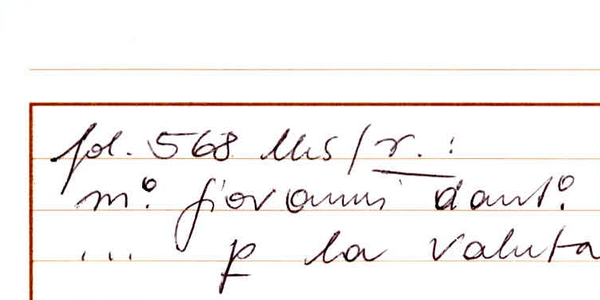 fol. 568 Ms/r. :
m° giovanni dant°
... p la valuta